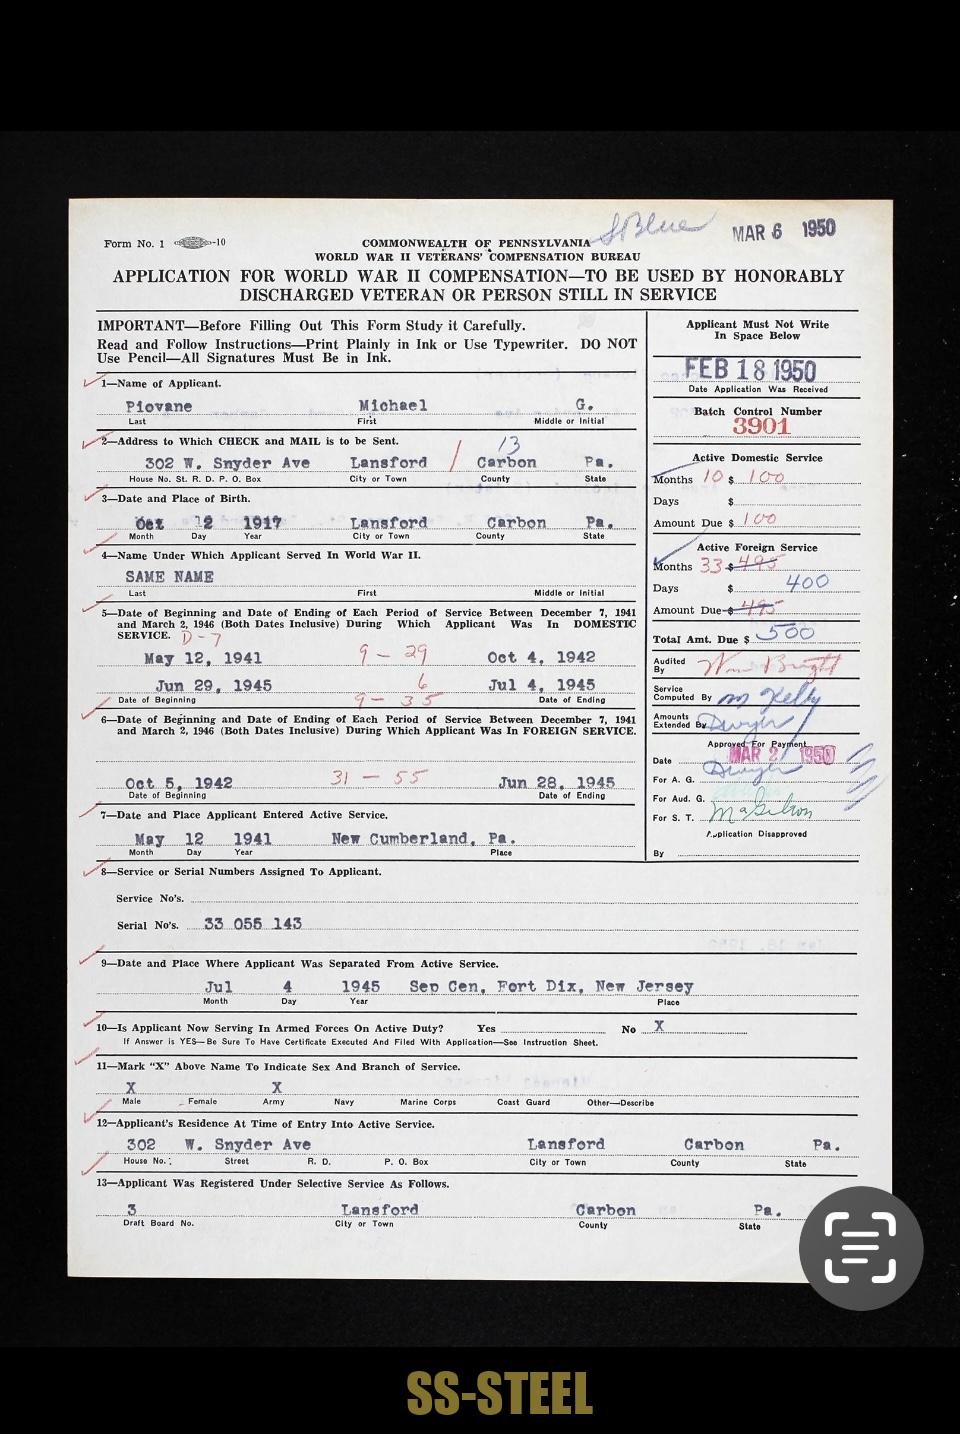 Form No. 1 -10
COMMONWEALTH OF PENNSYLVANIA
S Blue
MAR 6 1950
WORLD WAR II VETERANS' COMPENSATION BUREAU
APPLICATION FOR WORLD WAR II COMPENSATION—TO BE USED BY HONORABLY
DISCHARGED VETERAN OR PERSON STILL IN SERVICE
IMPORTANT—Before Filling Out This Form Study it Carefully.
Read and Follow Instructions—Print Plainly in Ink or Use Typewriter. DO NOT
Use Pencil—All Signatures Must Be in Ink.
1—Name of Applicant.
Piovane Michael G.
Last First Middle or Initial
2—Address to Which CHECK and MAIL is to be Sent.
13
302 W. Snyder Ave Lansford / Carbon Pa.
House No. St. R. D. P. O. Box City or Town County State
3—Date and Place of Birth.
Oct 12 1917 Lansford Carbon Pa.
Month Day Year City or Town County State
4—Name Under Which Applicant Served In World War II.
SAME NAME
Last First Middle or Initial
5—Date of Beginning and Date of Ending of Each Period of Service Between December 7, 1941
and March 2, 1946 (Both Dates Inclusive) During Which Applicant Was In DOMESTIC
SERVICE. D-7
May 12, 1941 9 - 29 Oct 4, 1942
Jun 29, 1945 6 Jul 4, 1945
Date of Beginning 9 - 35 Date of Ending
6—Date of Beginning and Date of Ending of Each Period of Service Between December 7, 1941
and March 2, 1946 (Both Dates Inclusive) During Which Applicant Was In FOREIGN SERVICE.
Oct 5, 1942 31 - 55 Jun 28, 1945
Date of Beginning Date of Ending
7—Date and Place Applicant Entered Active Service.
May 12 1941 New Cumberland, Pa.
Month Day Year Place
Applicant Must Not Write
In Space Below
FEB 18 1950
Date Application Was Received
Batch Control Number
3901
Active Domestic Service
Months 10 $ 100
Days $
Amount Due $ 100
Active Foreign Service
Months 33 $ 495
Days $ 400
Amount Due $ 495
Total Amt. Due $ 500
Audited
By Wm Bright
Service
Computed By M Kelly
Amounts
Extended By Dwyer
Approved For Payment
Date MAR 2 1950
For A. G. Dwyer
For Aud. G.
For S. T.
Application Disapproved
By
8—Service or Serial Numbers Assigned To Applicant.
Service No's.
Serial No's. 33 055 143
9—Date and Place Where Applicant Was Separated From Active Service.
Jul 4 1945 Sep Cen, Fort Dix, New Jersey
Month Day Year Place
10—Is Applicant Now Serving In Armed Forces On Active Duty? Yes No X
If Answer is YES—Be Sure To Have Certificate Executed And Filed With Application—See Instruction Sheet.
11—Mark "X" Above Name To Indicate Sex And Branch of Service.
X X
Male Female Army Navy Marine Corps Coast Guard Other—Describe
12—Applicant's Residence At Time of Entry Into Active Service.
302 W. Snyder Ave Lansford Carbon Pa.
House No. Street R. D. P. O. Box City or Town County State
13—Applicant Was Registered Under Selective Service As Follows.
3 Lansford Carbon Pa.
Draft Board No. City or Town County State
SS-STEEL